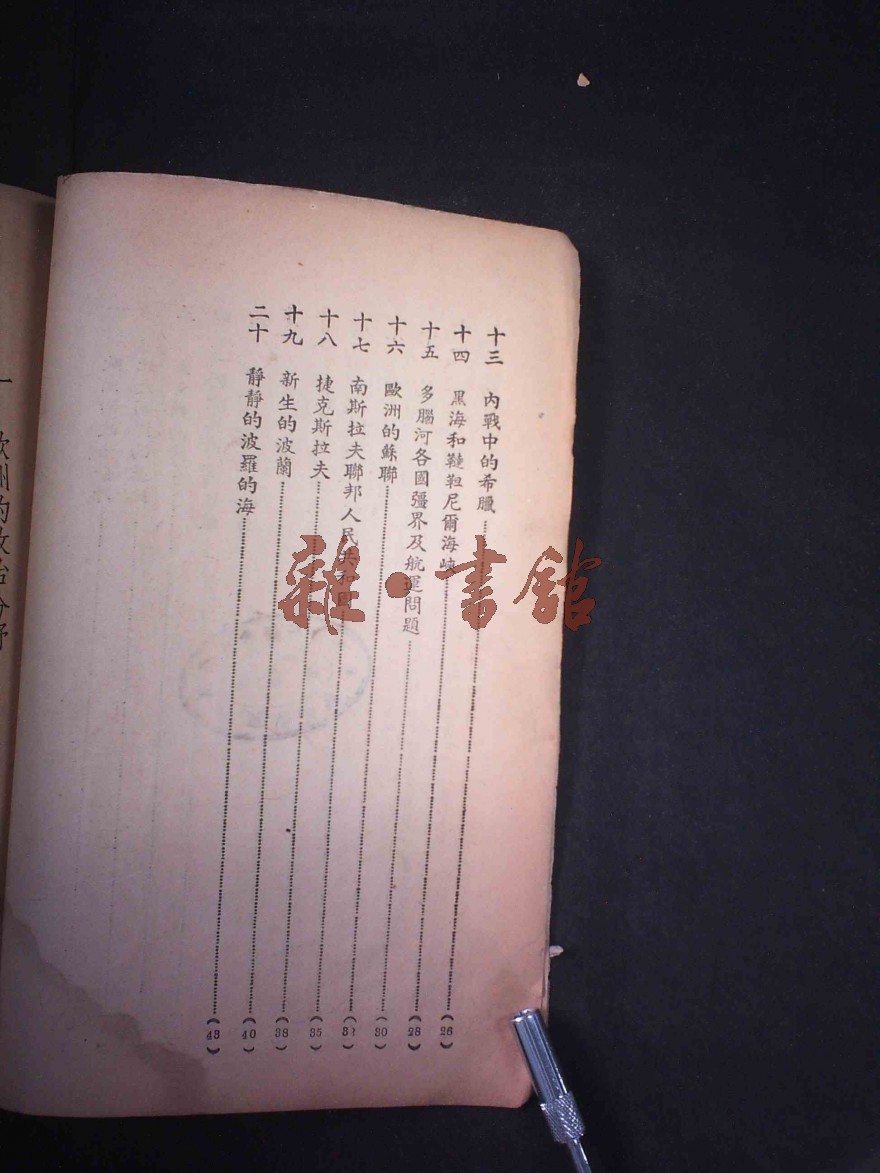 十三 內戰中的希臘……(26)
十四 黑海和韃靼尼爾海峽……(28)
十五 多腦河各國疆界及航運問題……(30)
十六 歐洲的蘇聯……(32)
十七 南斯拉夫聯邦人民共和國……(35)
十八 捷克斯拉夫……(38)
十九 新生的波蘭……(40)
二十 靜靜的波羅的海……(43)
一 歐洲的政治分野
雜·書館